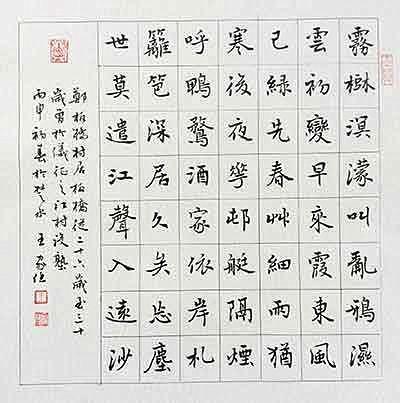 霧樹溟濛叫亂鴉濕
雲初變早來霞東風
已綠先春艸細雨猶
寒後夜華邨艇隔煙
呼鴨鶩酒家依岸札
籬笆深居久矣忘塵
世莫遣江聲入遠沙
鄭板橋村居板橋從二十六歲至三十
歲曾於儀征之江村設塾
丙申初春於 王家